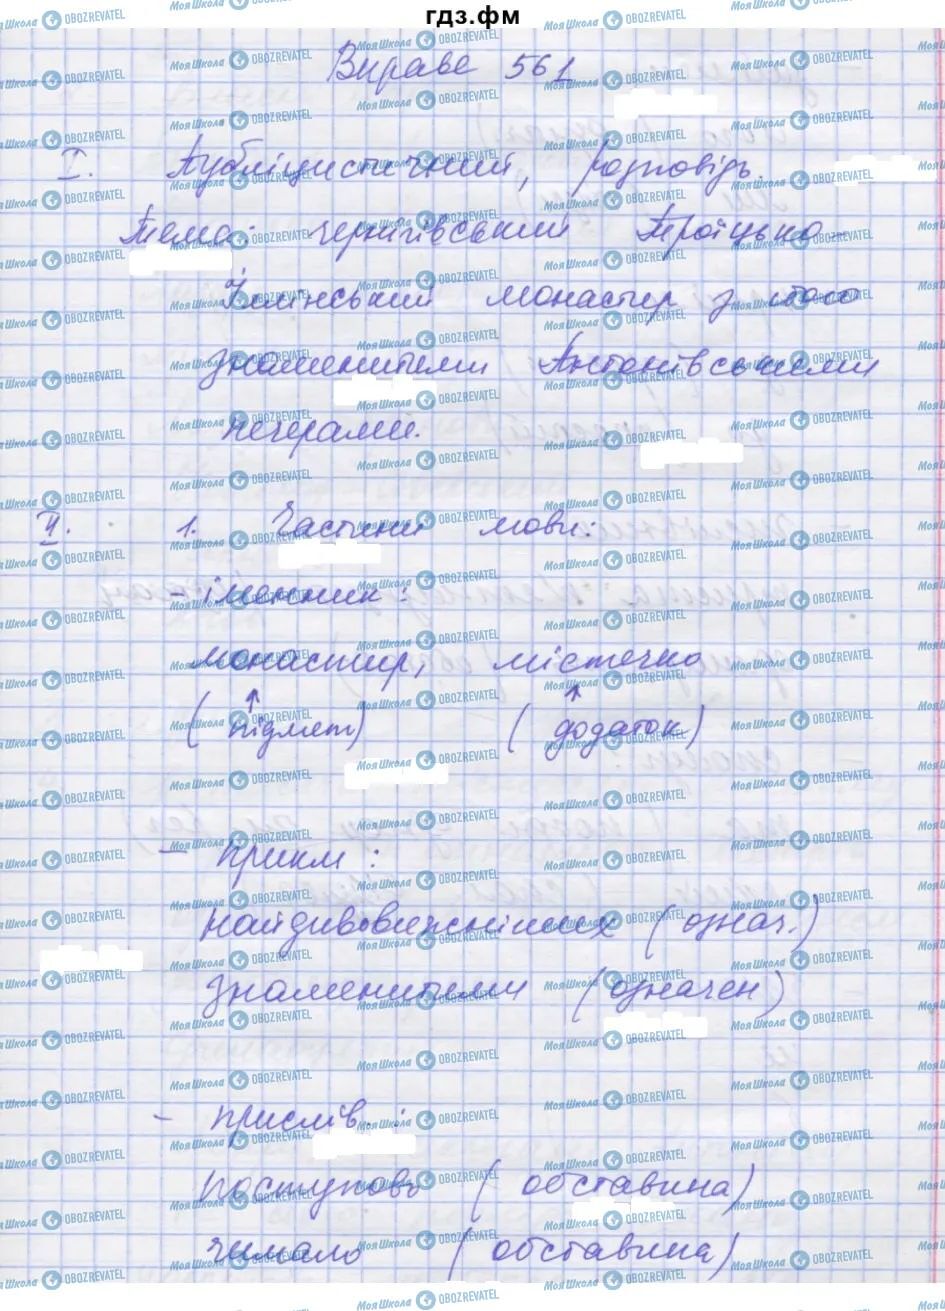 гдз.фм
Вправа 561
I. Публіцистичний, розповідь.
Тема: чернігівський Троїцько-
Іллінський монастир з його
знаменитими Антонівськими
печерами.
II. 1. Частини мови:
- іменник:
монастир, містечко
(підмет) (додаток)
- прикм:
найдивовижніших (означ.)
знаменитими (означен)
- прислів.:
поступово (обставина)
чимало (обставина)
Моя Школа OBOZREVATEL